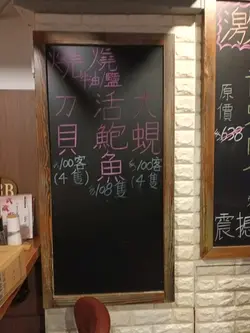 燒
刀
貝
$100客
(4隻)
燒
油/鹽
活
鮑
魚
$108隻
大
蜆
$100客
(4隻)
激
原
價
$638
震撼